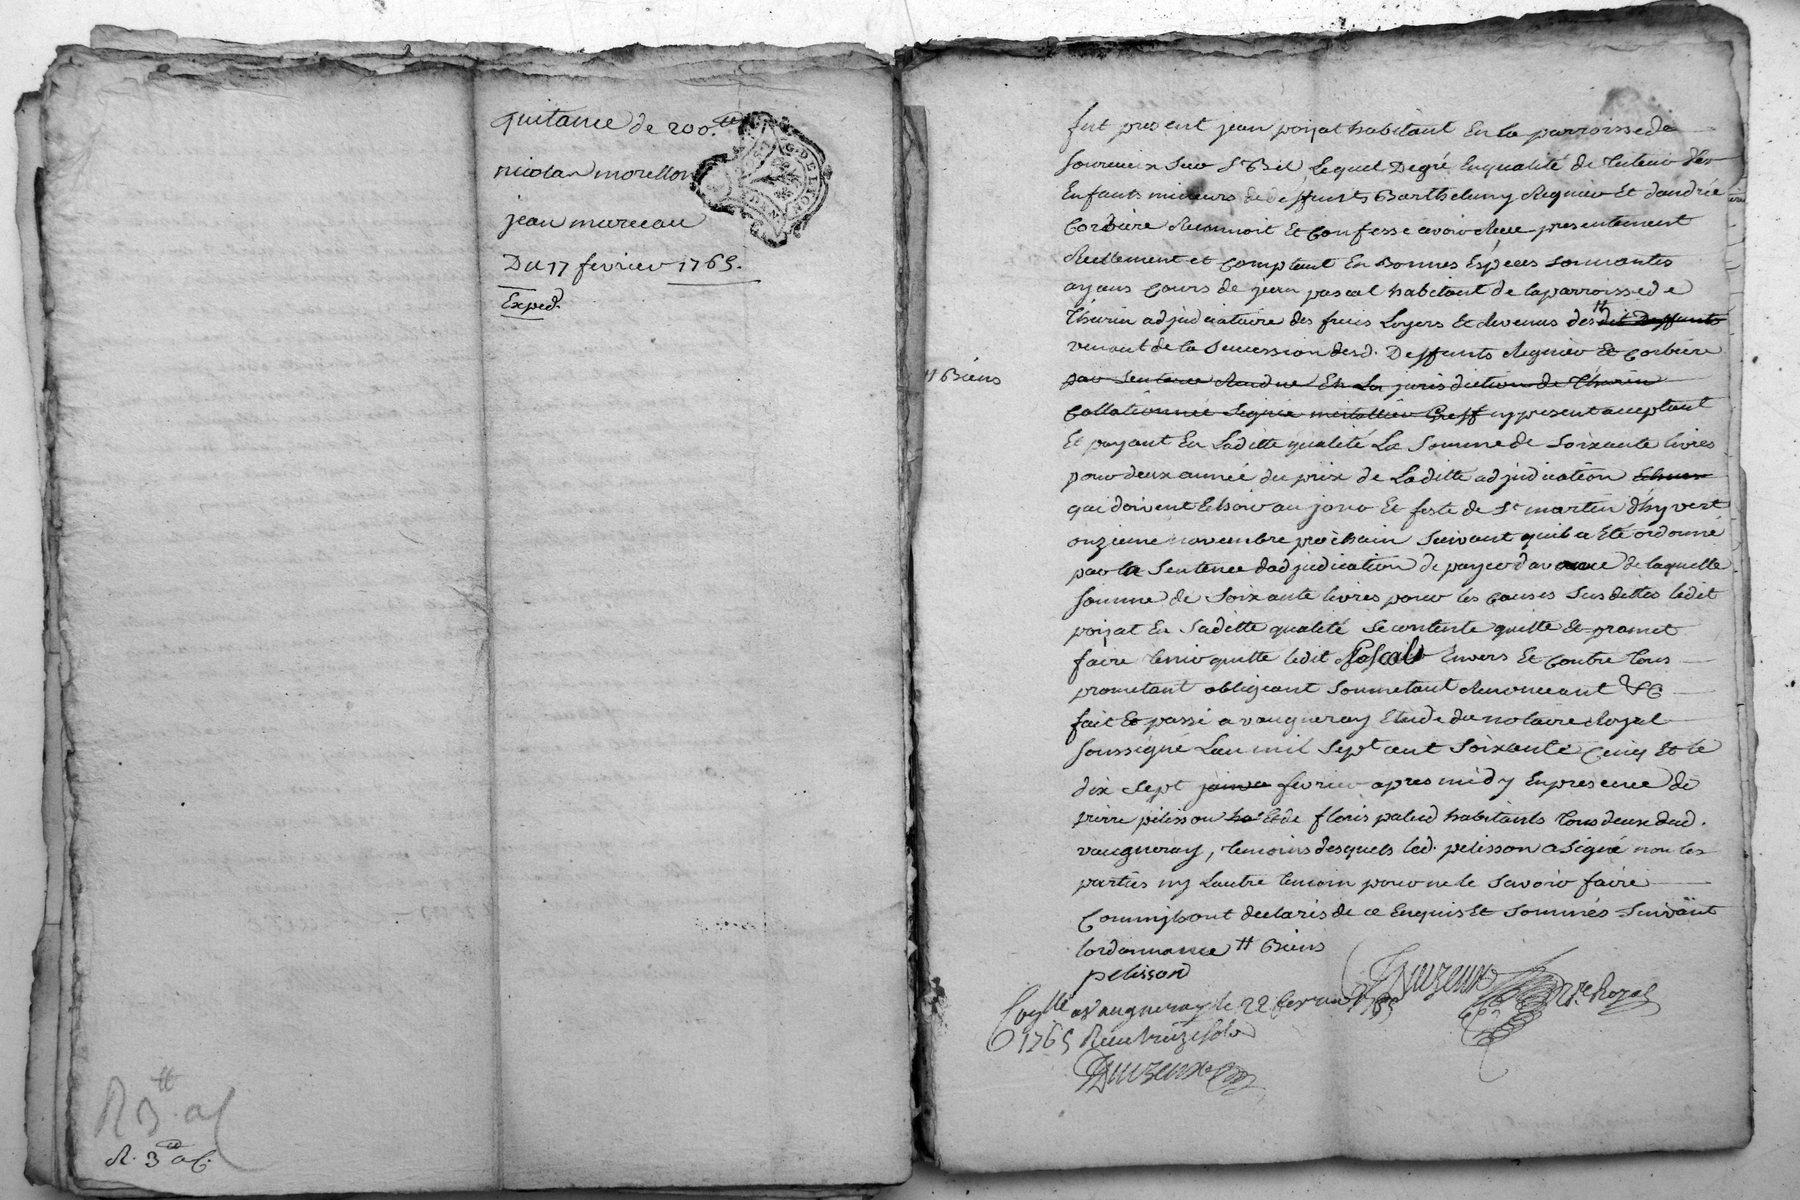 quitance de 200.tt
nicolas morellon
jean mureau
Du 17 fevrier 1765.
Exped.
G. DE LYON
R 3.tt
R. 3
fut present jean poizat habitant En la parroisse de
Sourcieux Sur S Bel Lequel Degré Enqualité de tuteur des
Enfants mineurs de deffunts Barthelemy Regnier Et dandrée
Corbiere Reconnoit Et Confesse avoir Reçu presentement
Reellement et Comptant En Bonnes Espéces Sonnantes
ayans Cours de jean pascal habitant de la parroisse de
Thurin adjudicataire des fruis Loyers Et Revenus des tt dit Deffunts
venant de la Succession desd. Deffunts Regnier Et Corbiere
tt Biens
par Sentence Rendue En La jurisdiction de Thurin
Collationnée Signée Greff icy present acceptant
Et payant En Laditte qualité La Somme de Soixante livres
pour deux année du prix de Laditte adjudication
qui doivent Echoir au jour Et feste de St martin d'hyvert
onzieme novembre prochain Suivant quil a Eté ordonné
par la Sentence dadjudication de payer davance de laquelle
Somme de Soixante livres pour les Causes Susdittes ledit
poizat En Saditte qualité Se contente quitte Et promet
faire tenir quitte ledit Pascal Envers Et Contre tous
prometant obligeant Soumetant Renonceant &C
fait Et passé a vaugneray Etude du notaire Royal
Soussigné Lan mil Sept cent Soixante Cinq Et le
dix Sept janvier fevrier apres midy Enpresence de
pierre pelisson ha Et de floris palud habitants tous deux dud.
vaugneray, temoins desquels led. pelisson a Signé non les
parties ny Lautre temoin pour ne le Savoir faire
Comm ils ont declarés de ce Enquis Et Sommés Suivant
lordonnance tt Biens
pelisson
Duzeux Nre Royal
Conllé a Vaugneray le 22 fevrier 1765
1765 Reçu treize sols
Duzeux